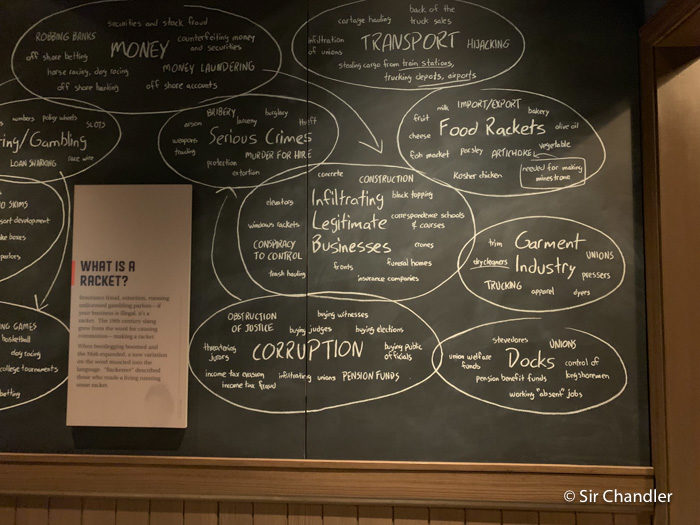 securities and stock fraud
ROBBING BANKS
counterfeiting money
and securities
MONEY
off shore betting
horse racing, dog racing
MONEY LAUNDERING
off shore banking
off shore accounts
cartage hauling
back of the
truck sales
infiltration
of unions
TRANSPORT
HIJACKING
stealing cargo from train stations,
trucking depots, airports
numbers
policy wheels
SLOTS
ring/Gambling
LOAN SHARKING
race wire
BRIBERY
burglary
arson
larceny
theft
weapons
Serious Crimes
MURDER FOR HIRE
protection
extortion
milk
IMPORT/EXPORT
bakery
fruit
Food Rackets
olive oil
cheese
vegetable
fish market
parsley
ARTICHOKE
Kosher chicken
needed for making
minestrone
concrete
CONSTRUCTION
elevators
Infiltrating
black topping
Legitimate
correspondence schools
& courses
windows rackets
Businesses
CONSPIRACY
TO CONTROL
cranes
fronts
funeral homes
trash hauling
insurance companies
O SKIMS
sort development
ke boxes
parlors
trim
Garment
UNIONS
dry cleaners
Industry
pressers
TRUCKING
apparel
dyers
NG GAMES
basketball
dog racing
college tournaments
betting
OBSTRUCTION
OF JUSTICE
buying witnesses
buying judges
buying elections
threatening
jurors
CORRUPTION
buying public
officials
income tax evasion
income tax fraud
infiltrating unions
PENSION FUNDS
stevedores
UNIONS
union welfare
funds
Docks
control of
longshoremen
pension benefit funds
working "absent" jobs
WHAT IS A
RACKET?
Insurance fraud, extortion, running
unlicensed gambling parlors—if
your business is illegal, it's a
racket. The 19th century slang
grew from the word for causing
commotion—making a racket.
When bootlegging boomed and
the Mob expanded, a new variation
on the word muscled into the
language. "Racketeer" described
those who made a living running
some racket.
© Sir Chandler